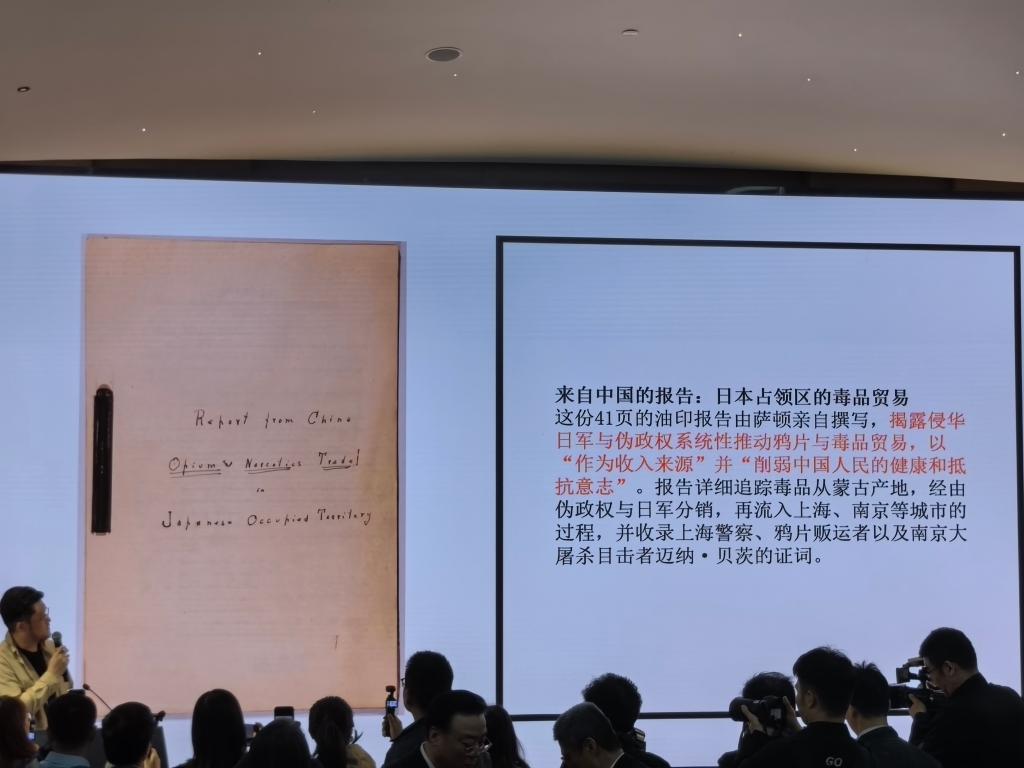 Report from China
Opium & Narcotics Trade
in
Japanese Occupied Territory
来自中国的报告：日本占领区的毒品贸易
这份41页的油印报告由萨顿亲自撰写，揭露侵华
日军与伪政权系统性推动鸦片与毒品贸易，以
“作为收入来源”并“削弱中国人民的健康和抵
抗意志”。报告详细追踪毒品从蒙古产地，经由
伪政权与日军分销，再流入上海、南京等城市的
过程，并收录上海警察、鸦片贩运者以及南京大
屠杀目击者迈纳·贝茨的证词。
GO